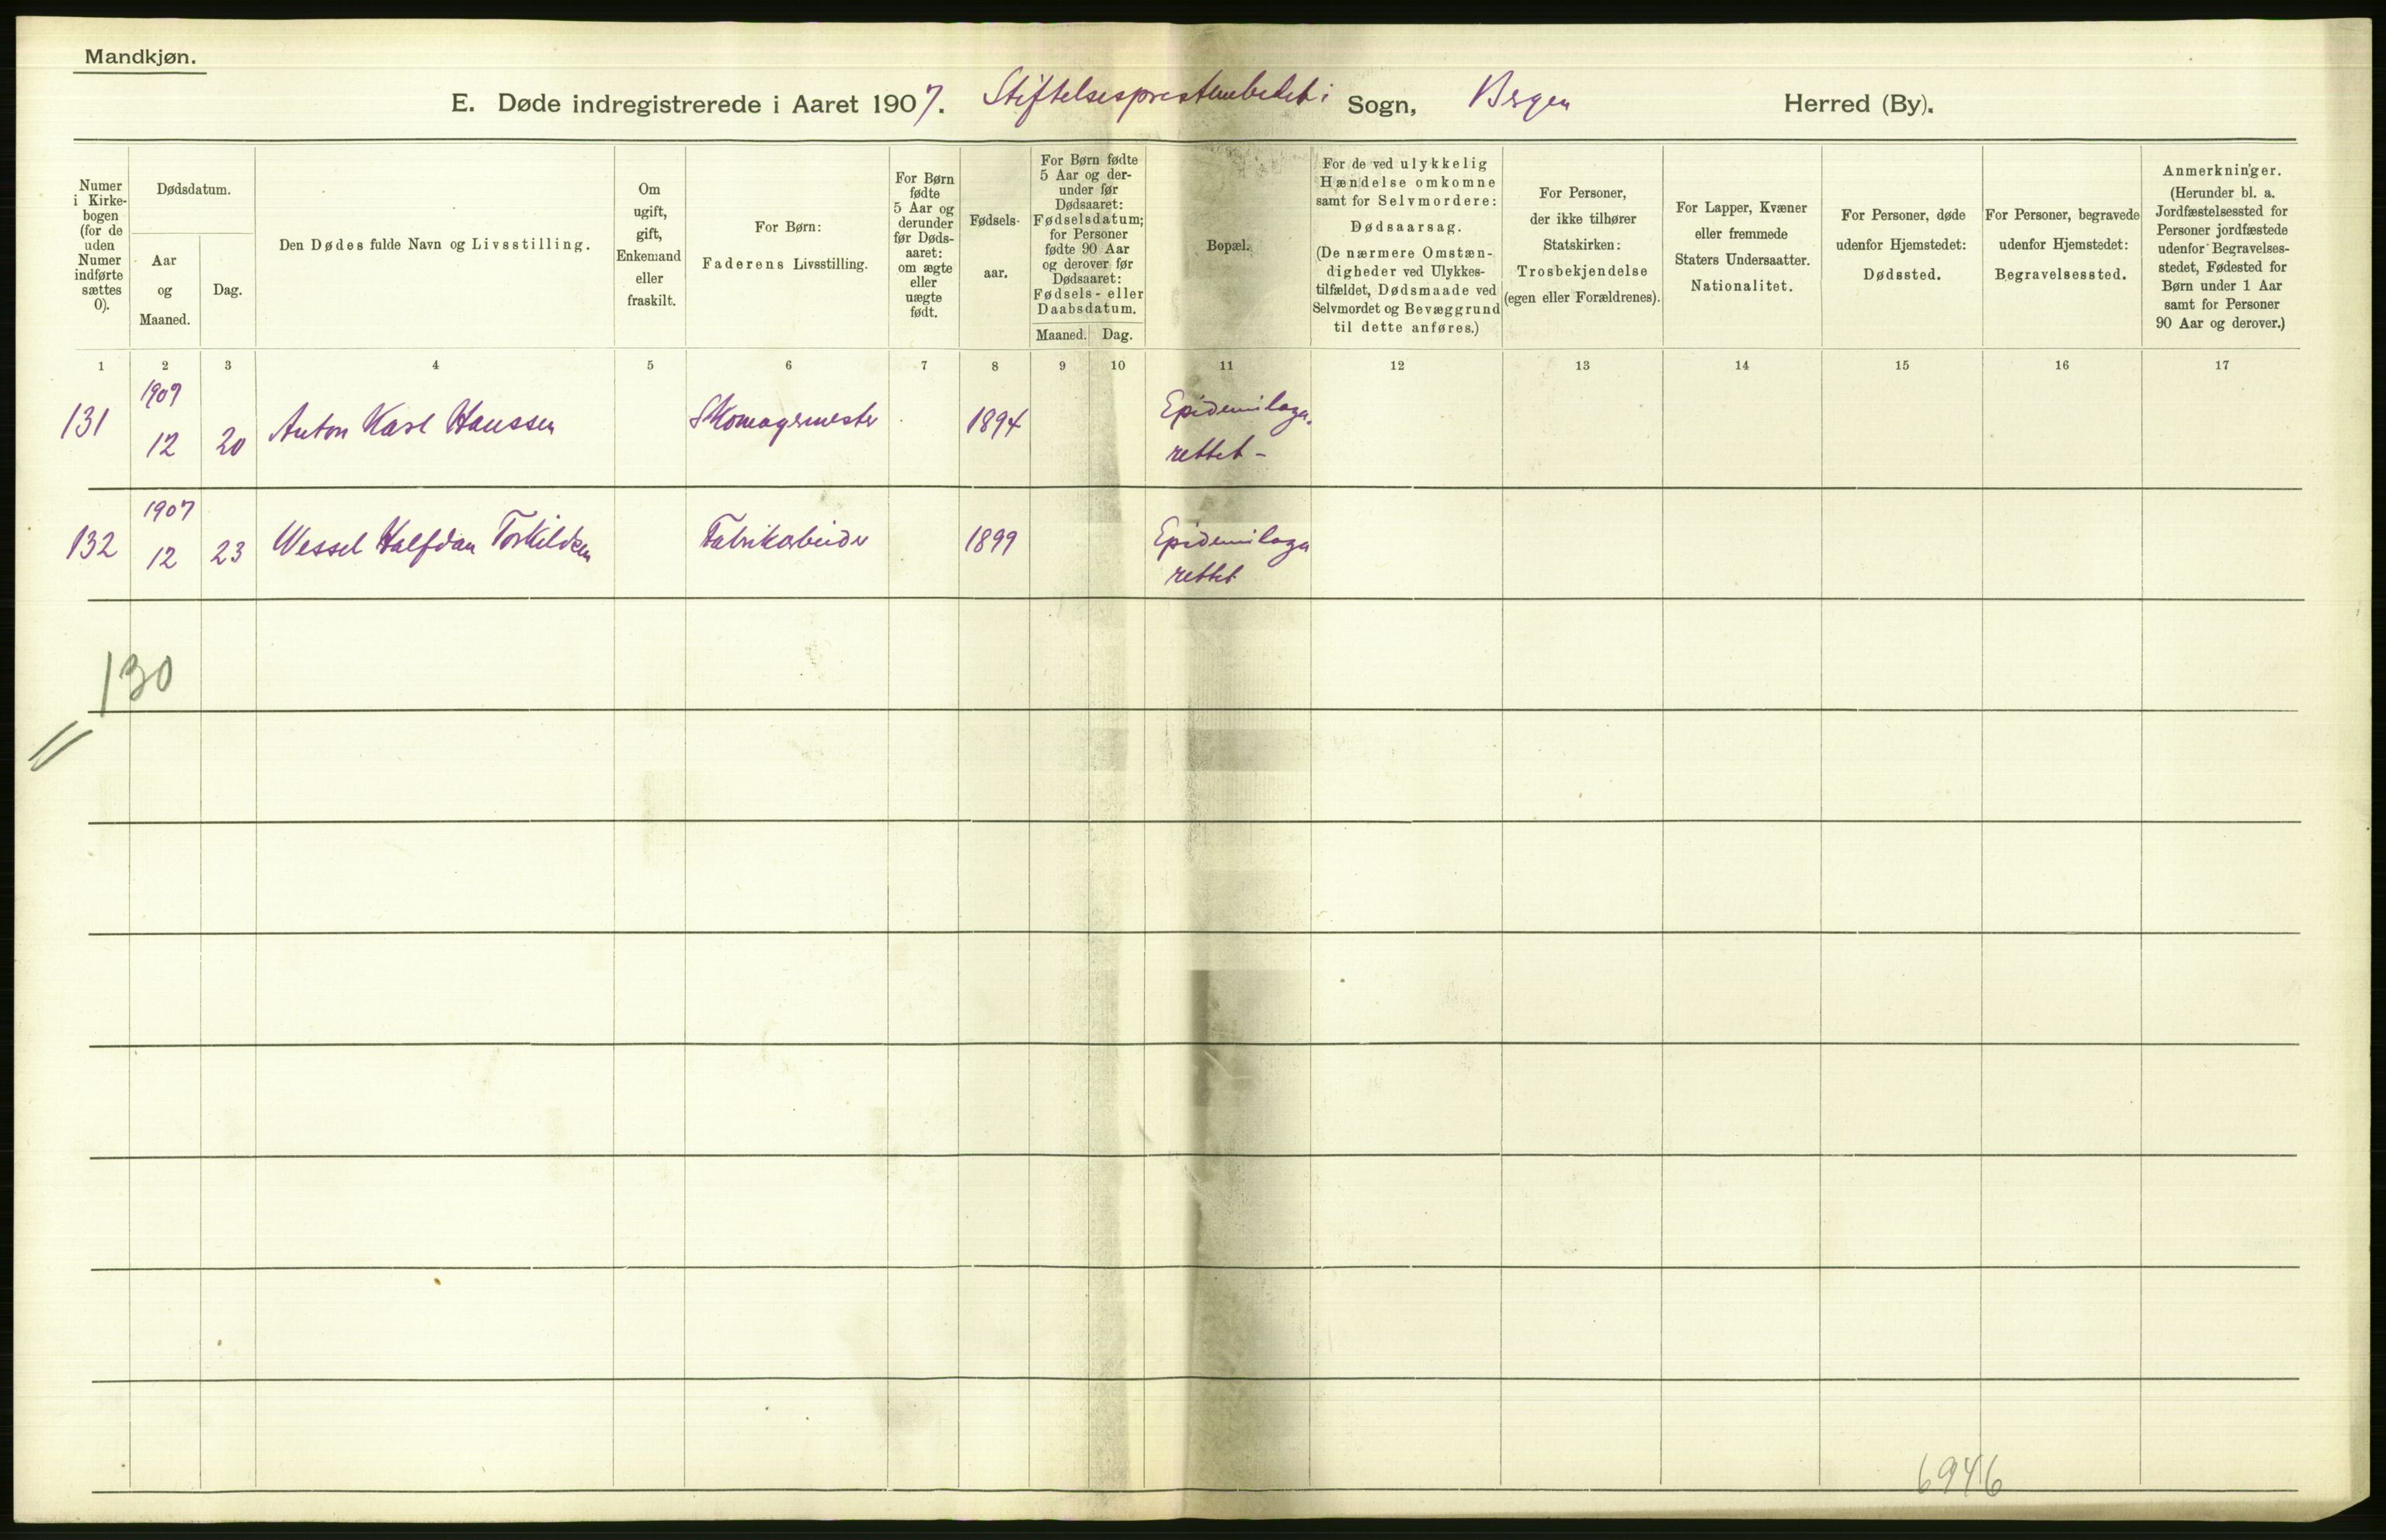 Mandkjøn.
E. Døde indregistrerede i Aaret 1907. Stiftelsesprestembedet i Sogn, Bergen Herred (By).
Numer
i Kirke-
bogen
(for de
uden
Numer
indførte
sættes
0).
Dødsdatum.
Aar
og
Maaned.
Dag.
Den Dødes fulde Navn og Livsstilling.
Om
ugift,
gift,
Enkemand
eller
fraskilt.
For Børn:
Faderens Livsstilling.
For Børn
fødte
5 Aar og
derunder
før Døds-
aaret:
om ægte
eller
uægte
født.
Fødsels-
aar.
For Børn fødte
5 Aar og der-
under før
Dødsaaret:
Fødselsdatum;
for Personer
fødte 90 Aar
og derover før
Dødsaaret:
Fødsels- eller
Daabsdatum.
Maaned. Dag.
Bopæl.
For de ved ulykkelig
Hændelse omkomne
samt for Selvmordere:
Dødsaarsag.
(De nærmere Omstæn-
digheder ved Ulykkes-
tilfældet, Dødsmaade ved
Selvmordet og Bevæggrund
til dette anføres.)
For Personer,
der ikke tilhører
Statskirken:
Trosbekjendelse
(egen eller Forældrenes).
For Lapper, Kvæner
eller fremmede
Staters Undersaatter.
Nationalitet.
For Personer, døde
udenfor Hjemstedet:
Dødssted.
For Personer, begravede
udenfor Hjemstedet:
Begravelsessted.
Anmerkninger.
(Herunder bl. a.
Jordfæstelsessted for
Personer jordfæstede
udenfor Begravelses-
stedet, Fødested for
Børn under 1 Aar
samt for Personer
90 Aar og derover.)
1 2 3 4 5 6 7 8 9 10 11 12 13 14 15 16 17
1907
131 12 20 Anton Karl Hanssen Skomagermester 1894 Epidemilaza-
rettet -
1907
132 12 23 Wessel Halfdan Torkildsen Fabrikarbeider 1899 Epidemilaza
rettet
130
6946